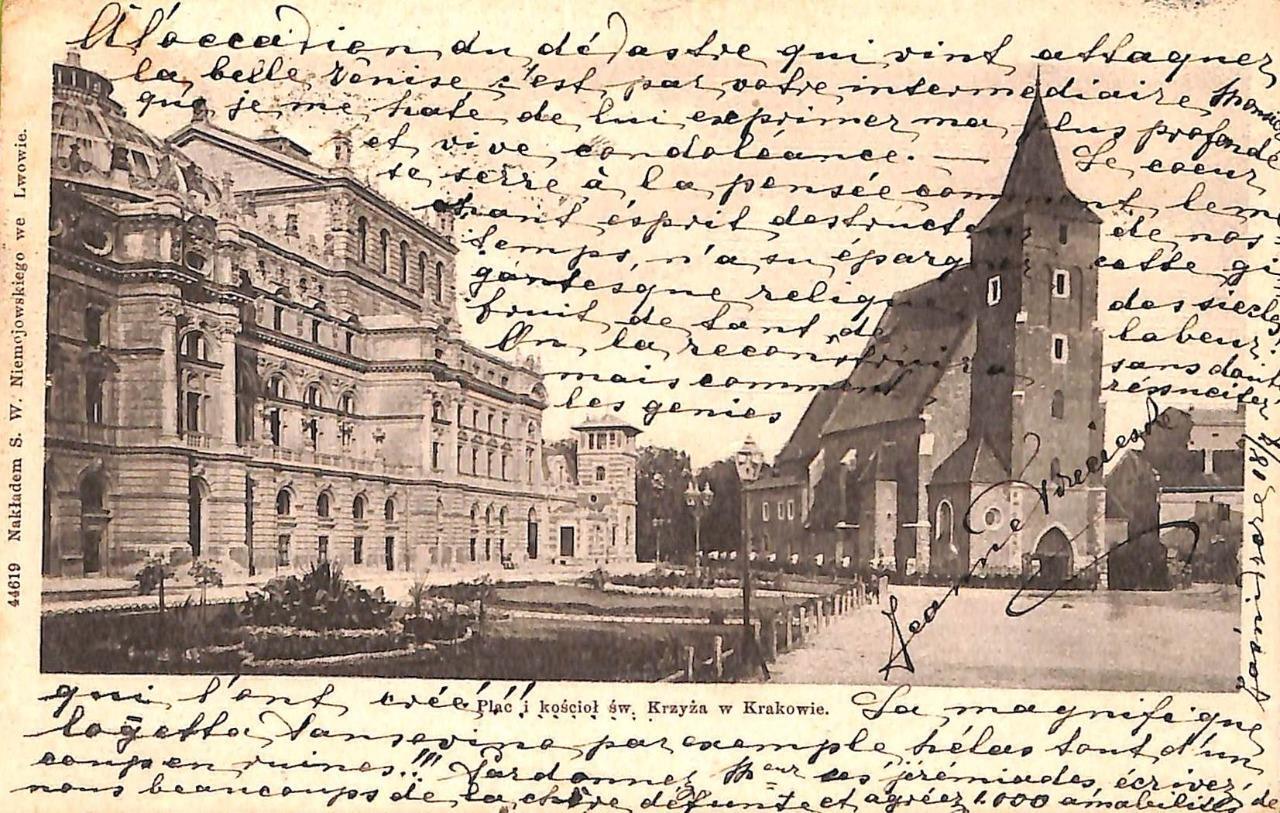 A l'occasion du désastre qui vint attaquer
la belle Vénise c'est par votre intermédiaire Monsieur
que je me hate de lui exprimer ma plus profonde
et vive condoléance. — Le coeur
se serre à la pensée comment, le
chant ésprit destructeur de nos
temps, n'a su épargner cette gi-
gantesque relique des siecles,
fruit de tant de labeur
On la reconstruira sans doute
mais comment resusciter
les genies
qui l'ont créé!!
La magnifique
logetta Sansovino par exemple, hélas tout d'un
coup en ruines!!! Pardonnez Mseur ces jérémiades, écrivez
nous beaucoups de la chère défunte et agréez 1.000 amabilités de
Jeanne
Plac i kościoł św. Krzyża w Krakowie.
44619 Nakładem S. W. Niemojowskiego we Lwowie.